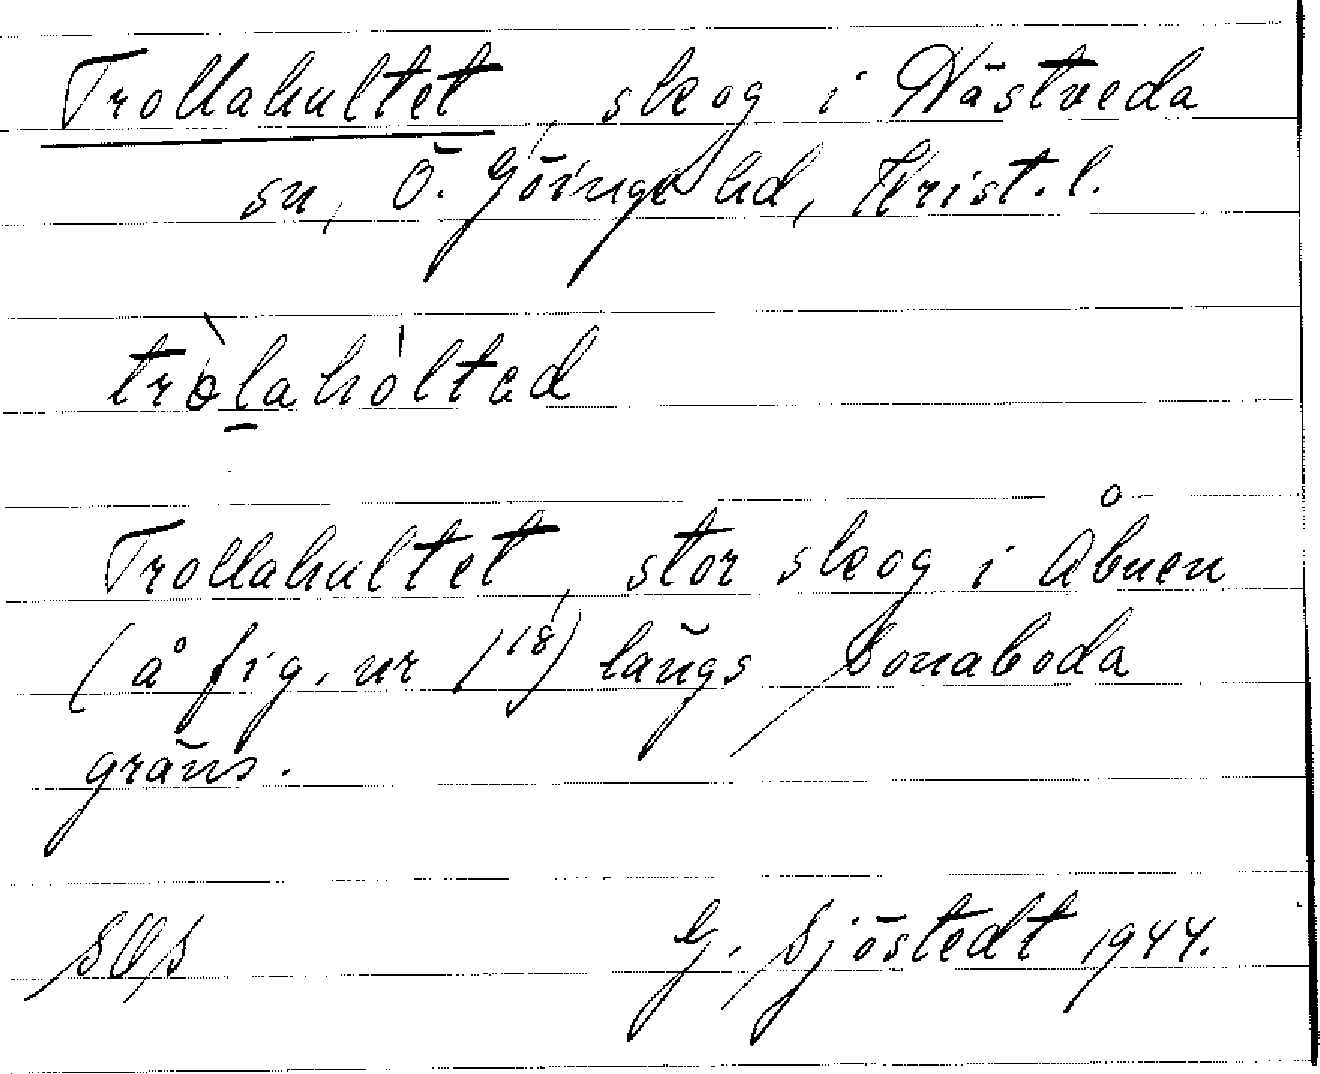 Trollahultet, skog i Nästveda
sn, Ö. Göinge hd, Krist. l.
tròlahòltəd
Trollahultet, stor skog i Åbuen
(å fig. nr 118) längs Sonaboda
gräns.
SOS G. Sjöstedt 1944.